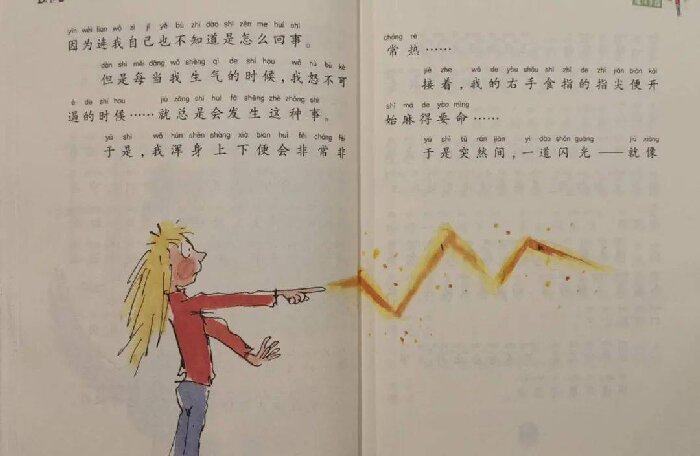 yīn wèi lián wǒ zì jǐ yě bù zhī dào shì zěn me huí shì
因为连我自己也不知道是怎么回事。
dàn shì měi dāng wǒ shēng qì de shí hou wǒ nù bù kě
但是每当我生气的时候，我怒不可
è de shí hou jiù zǒng shì huì fā shēng zhè zhǒng shì
遏的时候……就总是会发生这种事。
yú shì wǒ hún shēn shàng xià biàn huì fēi cháng fēi
于是，我浑身上下便会非常非
cháng rè
常热……
jiē zhe wǒ de yòu shǒu shí zhǐ de zhǐ jiān biàn kāi
接着，我的右手食指的指尖便开
shǐ má de yào mìng
始麻得要命……
yú shì tū rán jiān yī dào shǎn guāng jiù xiàng
于是突然间，一道闪光——就像